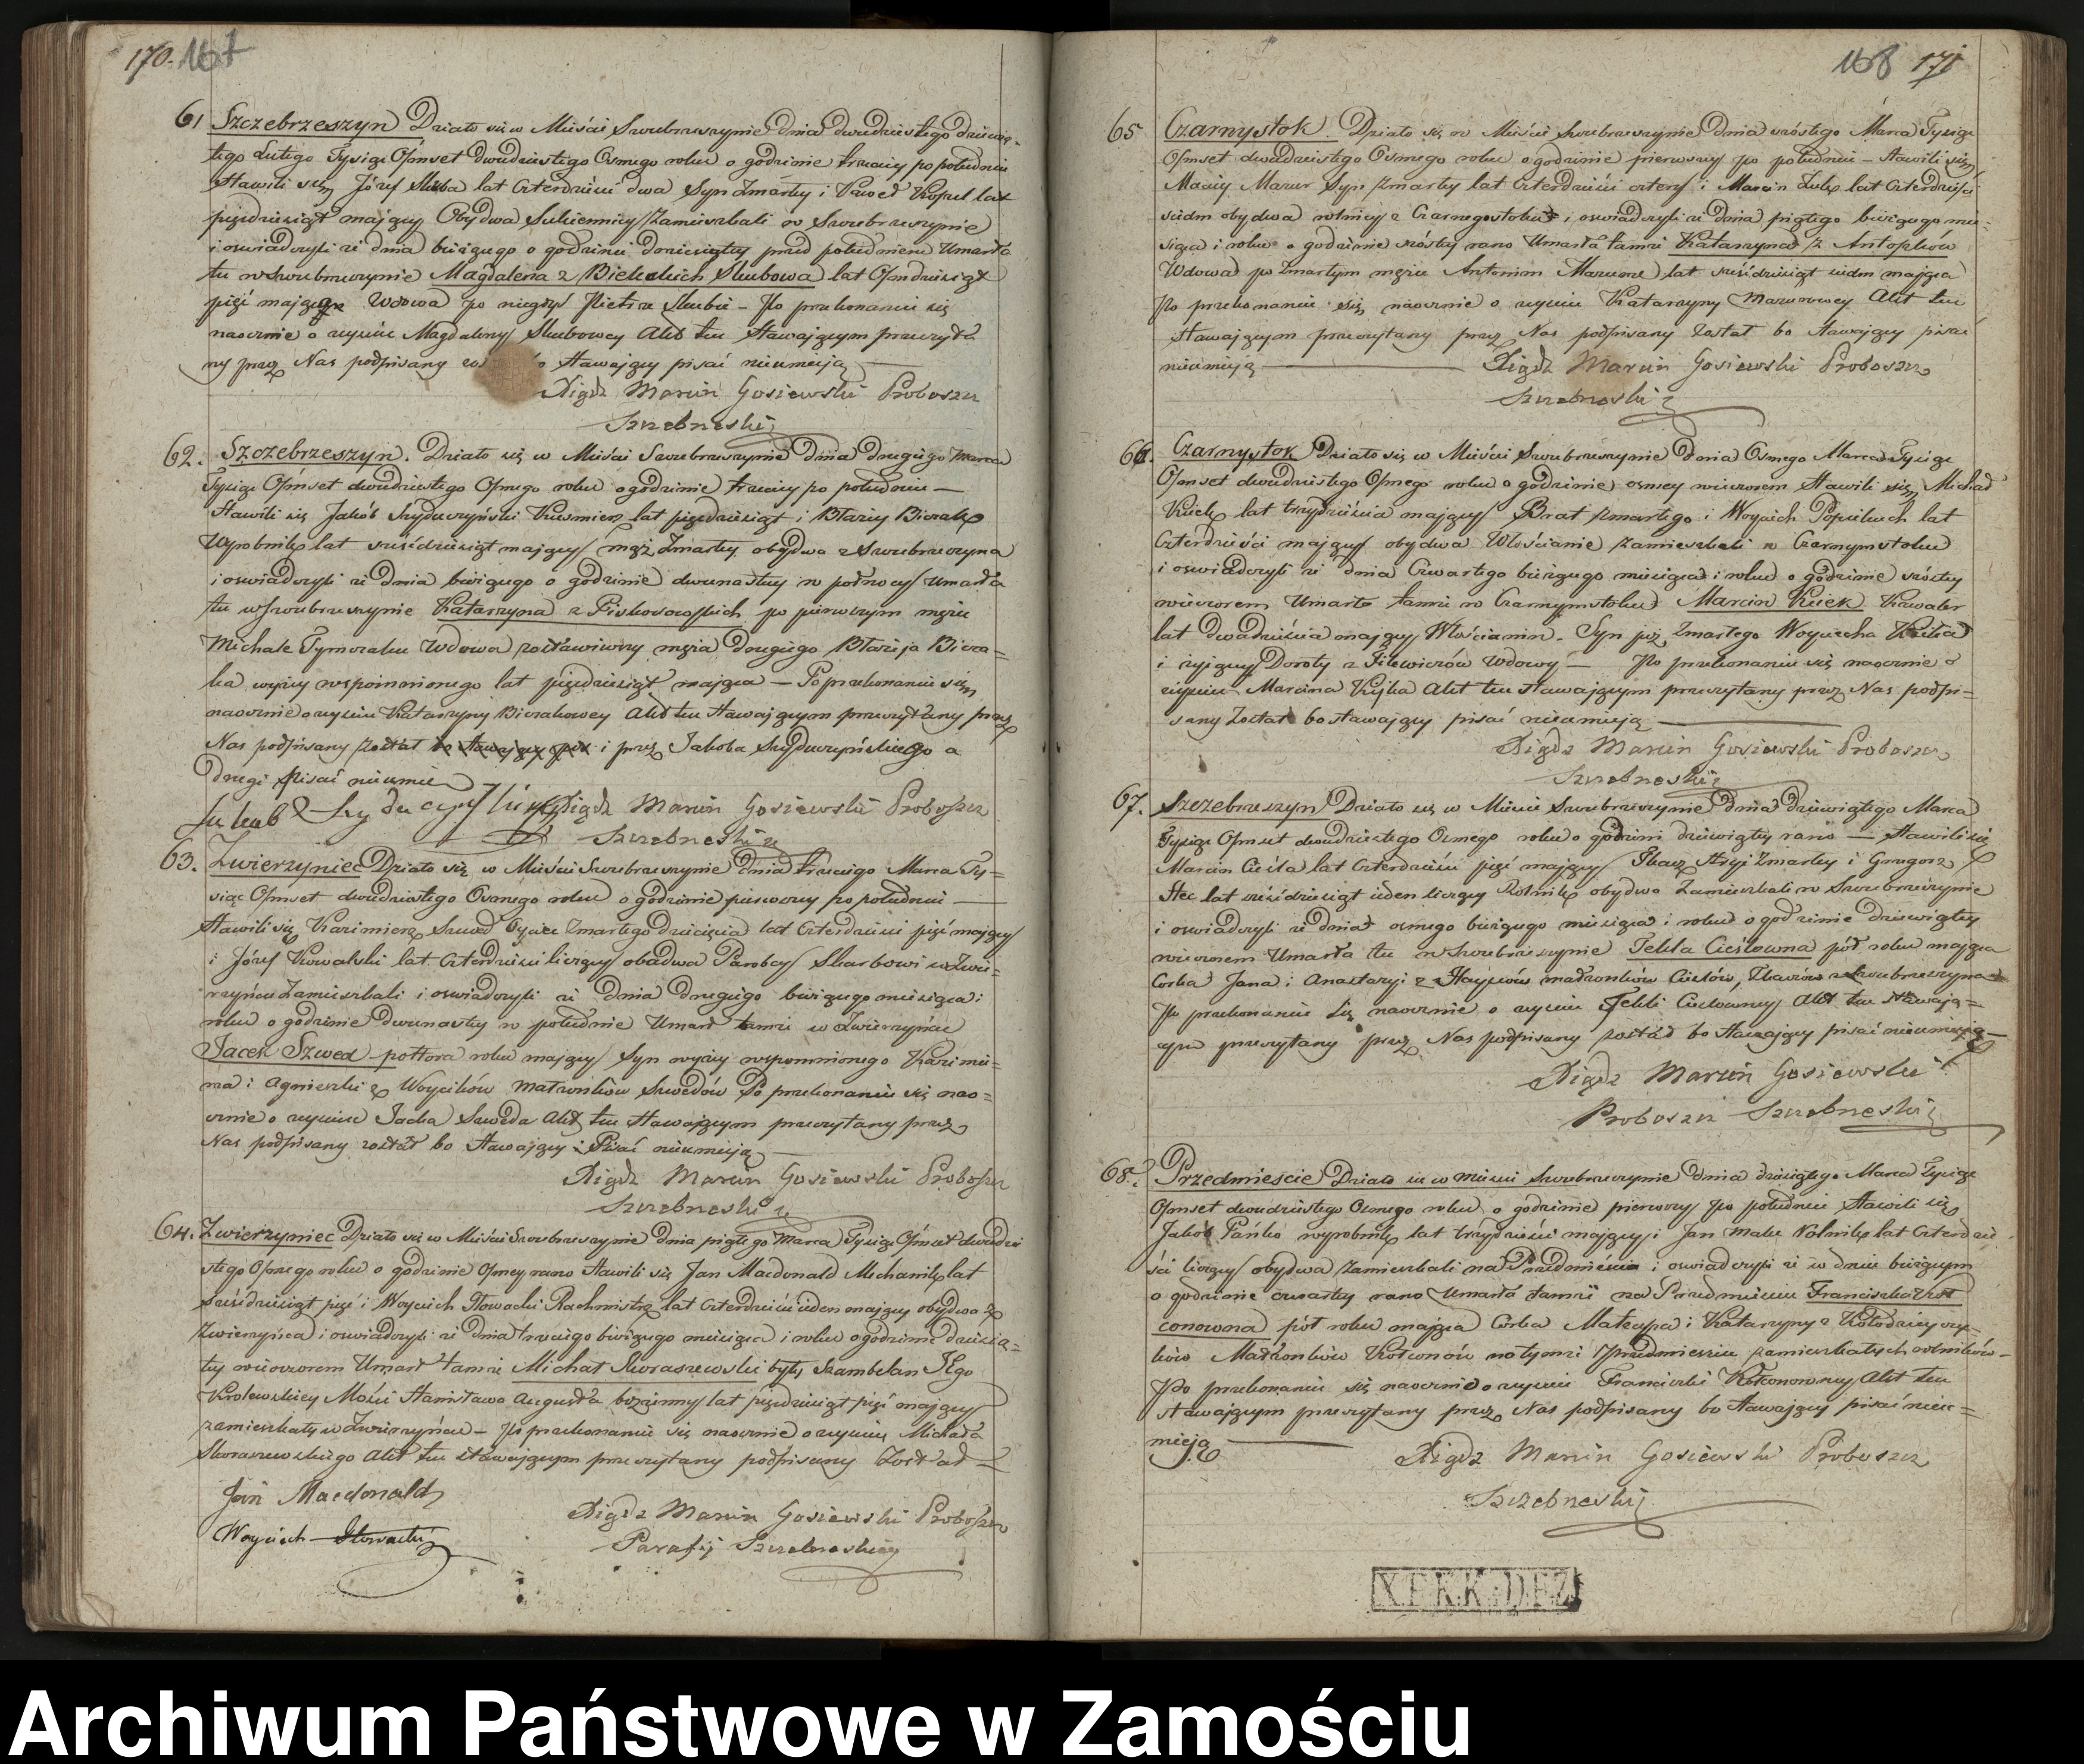 170. 167
61 Szczebrzeszyn Działo się w Mieście Szczebrzeszynie dnia dwudziestego dziewią-
tego Lutego Tysiąc Ośmset dwudziestego Osmego roku o godzinie trzeciey po południu
Stawili się Józef Skuba lat czterdzieści dwa Syn Zmarłey i Paweł lat
pięćdziesiąt maiący Obydwa Sukiennicy Zamieszkali w Szczebrzeszynie
i oswiadczyli iż dnia bieżącego o godzinie dziesiątey przed południem Umarła
tu w Szczebrzeszynie Magdalena z Bieleckich Skubowa lat Ośmdziesiąt
pięć maiąca Wdowa po niegdy Pietrze Skubie - Po przekonaniu się
naocznie o zeyściu Magdaleny Skubowey Akt ten stawaiącym przeczyta
ny przez Nas podpisany stawaiący pisać nieumieią
Xiądz Marcin Gosiewski Proboszcz
Szczebrzeski
62. Szczebrzeszyn. Działo się w Mieście Szczebrzeszynie dnia drugiego Marca
Tysiąc Ośmset dwudziestego Osmego roku o godzinie trzeciey po południu —
Stawili się Jakób Szyduczyński Kusmierz lat pięćdziesiąt i Błażey Bizak
Wyrobnik lat sześćdziesiąt maiący mąż Zmarłey obydwa z Szczebrzeszyna
i oswiadczyli iż dnia bieżącego o godzinie dwunastey w północy umarła
tu w Szczebrzeszynie Katarzyna z po pierwszym mężu
Michale Tymczaku Wdowa zostawiwszy męża drugiego Błażeja Biza=
ka wyżey wspomnionego lat pięćdziesiąt maiąca — Po przekonaniu się
naocznie o zeyściu Katarzyny Bizakowey Akt ten stawaiącym przeczytany przez
Nas podpisany został bo stawaiący pisa i przez Jakoba Szyduczyńskiego a
drugi pisać nieumie
Jakub Szyduczyński Xiądz Marcin Gosiewski Proboszcz
Szczebrzeski
63. Zwierzyniec Działo się w Mieście Szczebrzeszynie dnia trzeciego Marca Ty=
siąc Ośmset dwudziestego Osmego roku o godzinie pierwszey po południu —
Stawili się Kazimierz Szwed Oyciec Zmarłego dziecięcia lat czterdzieści pięć maiący
i Józef Kowalski lat czterdzieści liczący obadwa Parobcy Skarbowi w Zwie=
rzyńcu Zamieszkali i oswiadczyli iż dnia drugiego bieżącego miesiąca i
roku o godzinie dwunastey w południe Umarł tamże w Zwierzyńcu
Jacek Szwed półtora roku maiący Syn wyżey wspomnionego Kazimie=
rza i Agnieszki z Woycików Małżonków Szwedów Po przekonaniu się nao=
cznie o zeyściu Jacka Szweda Akt ten stawaiącym przeczytany przez
Nas podpisany został bo stawaiący Pisać nieumieią
Xiądz Marcin Gosiewski Proboszcz
Szczebrzeski
64. Zwierzyniec Działo się w Mieście Szczebrzeszynie dnia piątego Marca Tysiąc Ośmset dwudzie
stego Osmego roku o godzinie Osmey rano Stawili się Jan Macdonald Mechanik lat
sześćdziesiąt pięć i Woyciech Słowacki Rachmistrz lat czterdzieści ieden maiący obydwa z
Zwierzyńca i oswiadczyli iż dnia trzeciego bieżącego miesiąca i roku o godzinie dziesią=
tey wieczorem Umarł tamże Michał Skoraszewski były Szambelan JEgo
Krolewskiey Mości Stanisława Augusta bezzenny lat pięćdziesiąt pięć maiący
zamieszkały w Zwierzyńcu - Po przekonaniu się naocznie o zeyściu Michała
Skoraszewskiego Akt ten stawaiącym przeczytany podpisany Został
Jan Macdonald
Woyciech Słowacki
Xiądz Marcin Gosiewski Proboszcz
Parafij Szczebrzeskiey
168 171
65 Czarnystok. Działo się w Mieście Szczebrzeszynie dnia szóstego Marca Tysiąc
Ośmset dwudziestego Osmego roku o godzinie pierwszey po południu - Stawili się
Maciey Mazur Syn zmarłey lat czterdzieści cztery i Marcin Zuk lat Czterdzieści
siedm obydwa rolnicy z Czarnegostoku i oswiadczyli iż dnia piątego bieżącego mie=
siąca i roku o godzinie szóstey rano Umarła tamże Katarzyna z Antoszków
Wdowa po zmarłym mężu Antonim Mazurze lat sześćdziesiąt siedm maiąca
Po przekonaniu się naocznie o zeyściu Katarzyny Mazurowey Akt ten
stawaiącym przeczytany przez Nas podpisany Został bo stawaiący pisać
nieumieią
Xiądz Marcin Gosiewski Proboszcz
Szczebrzeski
66. Czarnystok Działo się w Mieście Szczebrzeszynie dnia Osmego Marca Tysiąc
Ośmset dwudziestego Osmego roku o godzinie osmey wieczorem Stawili się Michał
Kiick lat trzydzieścia maiący Brat zmarłego i Woyciech lat
Czterdzieści maiący obydwa Włościanie zamieszkali w Czarnymstoku
i oswiadczyli iż dnia Czwartego bieżącego miesiąca i roku o godzinie szóstey
wieczorem Umarł tamże w Czarnymstoku Marcin Kiiek Kawaler
lat dwadzieścia maiący Włościanin. Syn już Zmarłego Woyciecha Kiika
i żyjącey Doroty z Wdowy — Po przekonaniu się naocznie o
zeyściu Marcina Kijka Akt ten stawaiącym przeczytany przez Nas podpi=
sany Został bo stawaiący pisać nieumieią
Xiądz Marcin Gosiewski Proboszcz
Szczebrzeski
67. Szczebrzeszyn Działo się w Mieście Szczebrzeszynie dnia dziewiątego Marca
Tysiąc Ośmset dwudziestego Osmego roku o godzini dziewiątey rano — Stawili się
Marcin Cieśla lat czterdzieści pięć maiący Tkacz Stryi Zmarłey i Grzegorz
Stec lat sześćdziesiąt ieden liczący Rolnik obydwa Zamieszkali w Szczebrzeszynie
i oswiadczyli iż dnia osmego bieżącego miesiąca i roku o godzinie dziewiątey
wieczorem Umarła tu w Szczebrzeszynie Tekla Cieślowna pół roku maiąca
Corka Jana i Anastazyi z małżonków Cieślów, Tkaczów z Szczebrzeszyna
Po przekonaniu Się naocznie o zeyściu Tekli Cieslowney Akt ten stawaią=
cym przeczytany przez Nas podpisany został bo stawaiący pisać nieumieią
Xiądz Marcin Gosiewski
Proboszcz Szczebrzeski
68. Przedmieście Działo się w mieście Szczebrzeszynie dnia dziesiątego Marca Tysiąc
Ośmset dwudziestego Osmego roku o godzinie pierwszey po południu Stawili się
Jakób Pańko wyrobnik lat trzydzieści maiący i Jan Rolnik lat czterdzie
ści liczący obydwa zamieszkali na Przedmieściu i oswiadczyli iż w dniu bieżącym
o godzinie czwartey rano Umarła tamże na Przedmieściu Franciszka Kot
conowna pół roku maiąca Corka Mateusza i Katarzyny z
ków Małżonków Kotconów na tymże Przedmieściu zamieszkałych rolników-
Po przekonaniu się naocznie o zeyściu Franciszki Kotconowney Akt ten
stawaiącym przeczytany przez Nas podpisany bo stawaiący pisać nieu=
mieją
Xiądz Marcin Gosiewski Proboszcz
Szczebrzeski
Archiwum Państwowe w Zamościu